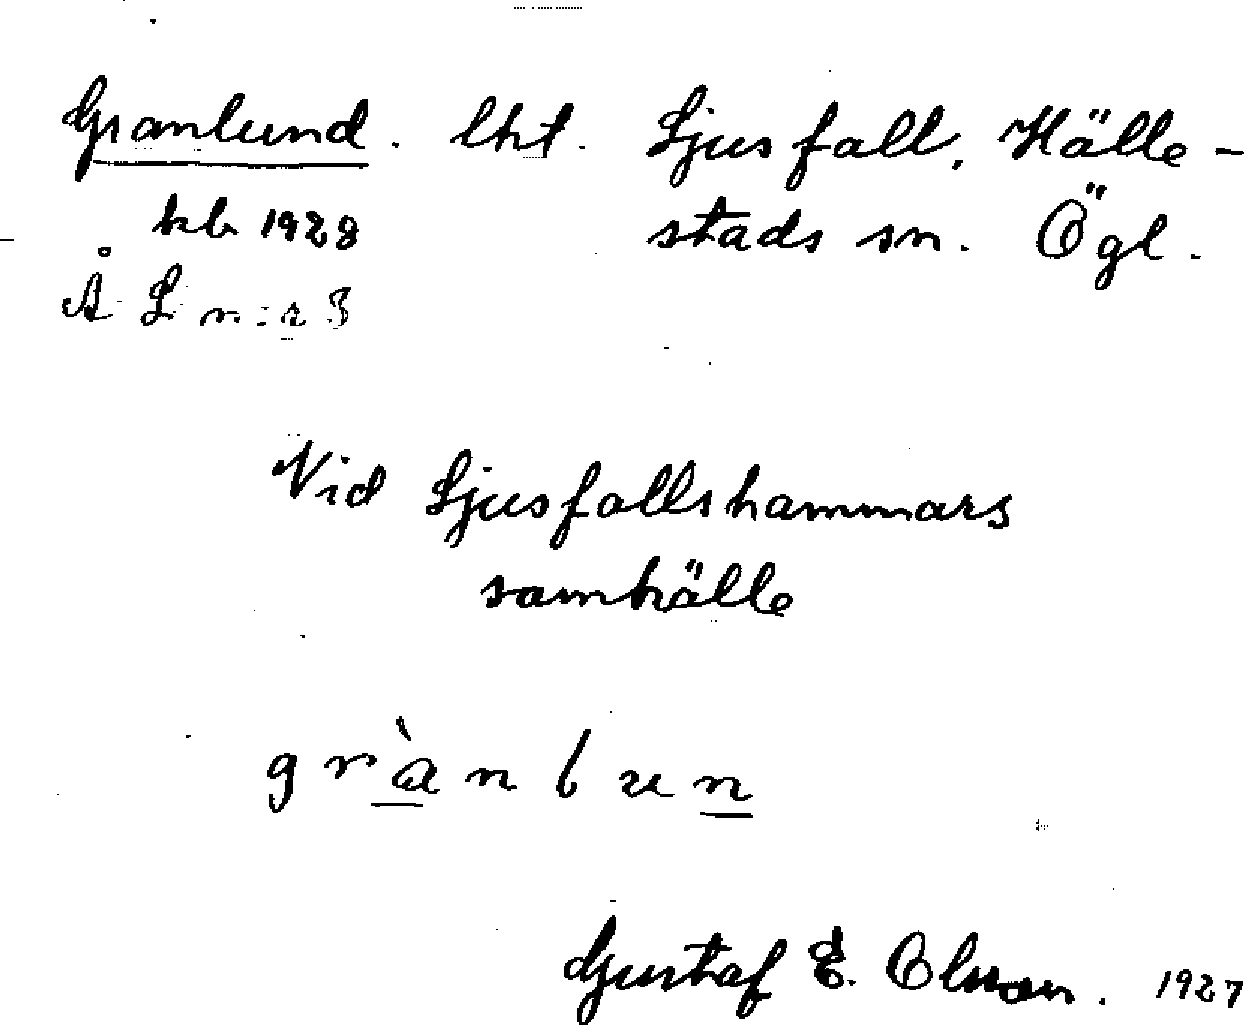 Granlund. lht. Ljusfall, Hälle-
kb 1928 stads sn. Ögl.
Å L n:r 3
Vid Ljusfallshammars
samhälle
gràn l u n
Gustaf E. Olsson. 1927